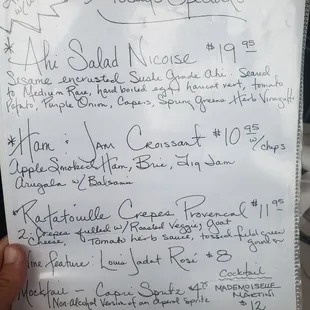 Today's Specials
* Ahi Salad Nicoise $19.95
Sesame encrusted Sushi Grade Ahi. Seared
to Medium Rare, hard boiled egg, haricot vert, tomato
Potato, Purple Onion, Capers, Spring Greens Herb Vinaig
* Ham & Jam Croissant $10.95
w/chips
Apple Smoked Ham, Brie, Fig Jam
Arugula w/ Balsamic
* Ratatouille Crepes Provencal $11.95
2 Crepes filled w/ Roasted Veggies, Goat
Cheese, Tomato herb sauce, tossed field green
garnish
Wine Feature: Louis Jadot Rosé $8
Mocktail - Capri Spritz
Non-Alcohol Version of an Aperol Spritz
Cocktail
MADEMOISELLE
MARTINI
$12